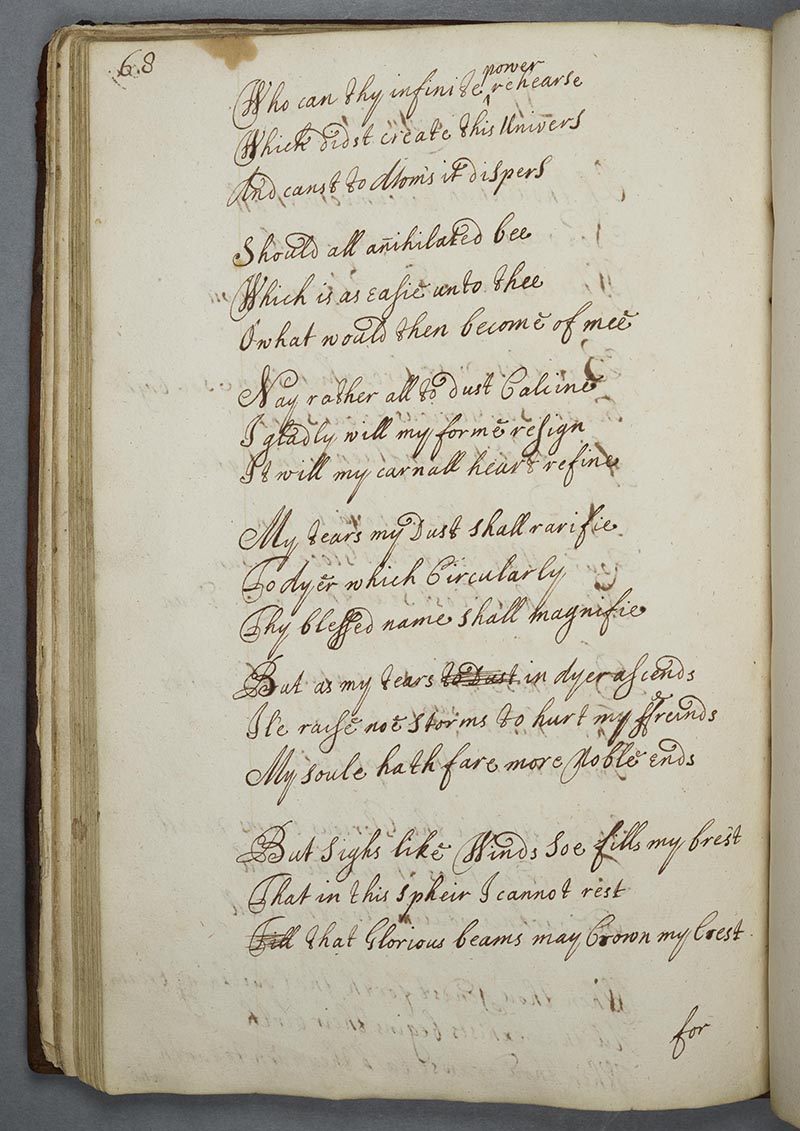 68
Who can thy infinite power rehearse
Which didst create this Univers
And canst to Atoms it dispers
Should all an̄ihilated bee
Which is as easie unto thee
O what would then become of mee
Nay rather all to dust Calcine
I gladly will my forme resign
It will my carnall heart refine
My tears my Dust shall rarifie
To Ayer which Circularly
Thy blessed name shall magnifie
But as my tears to Dust in Ayer ascends
Ile raise noe storms to hurt my ffreinds
My soule hath fare more Noble ends
But sighs like Winds soe fills my brest
That in this spheir I cannot rest
Till that Glorious beams may Crown my Crest
for